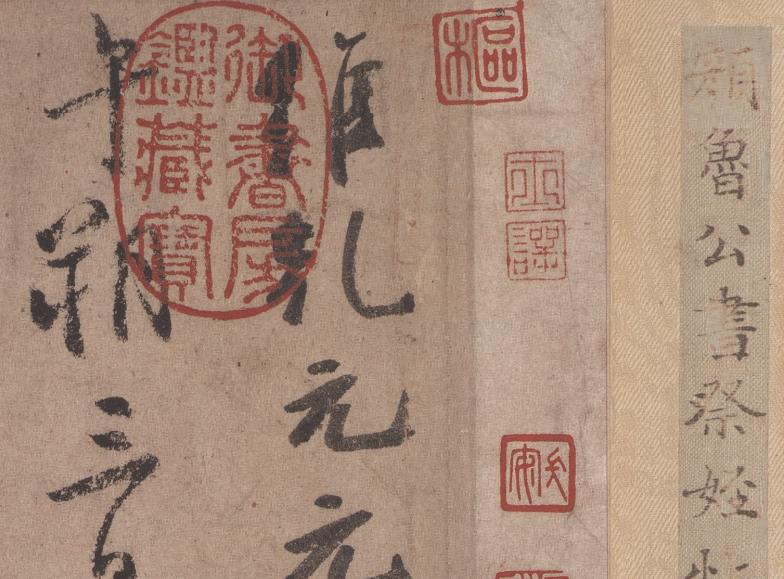 顏魯公書祭姪
樞
維乾元元
御書房
鑑藏寶
午朔三日